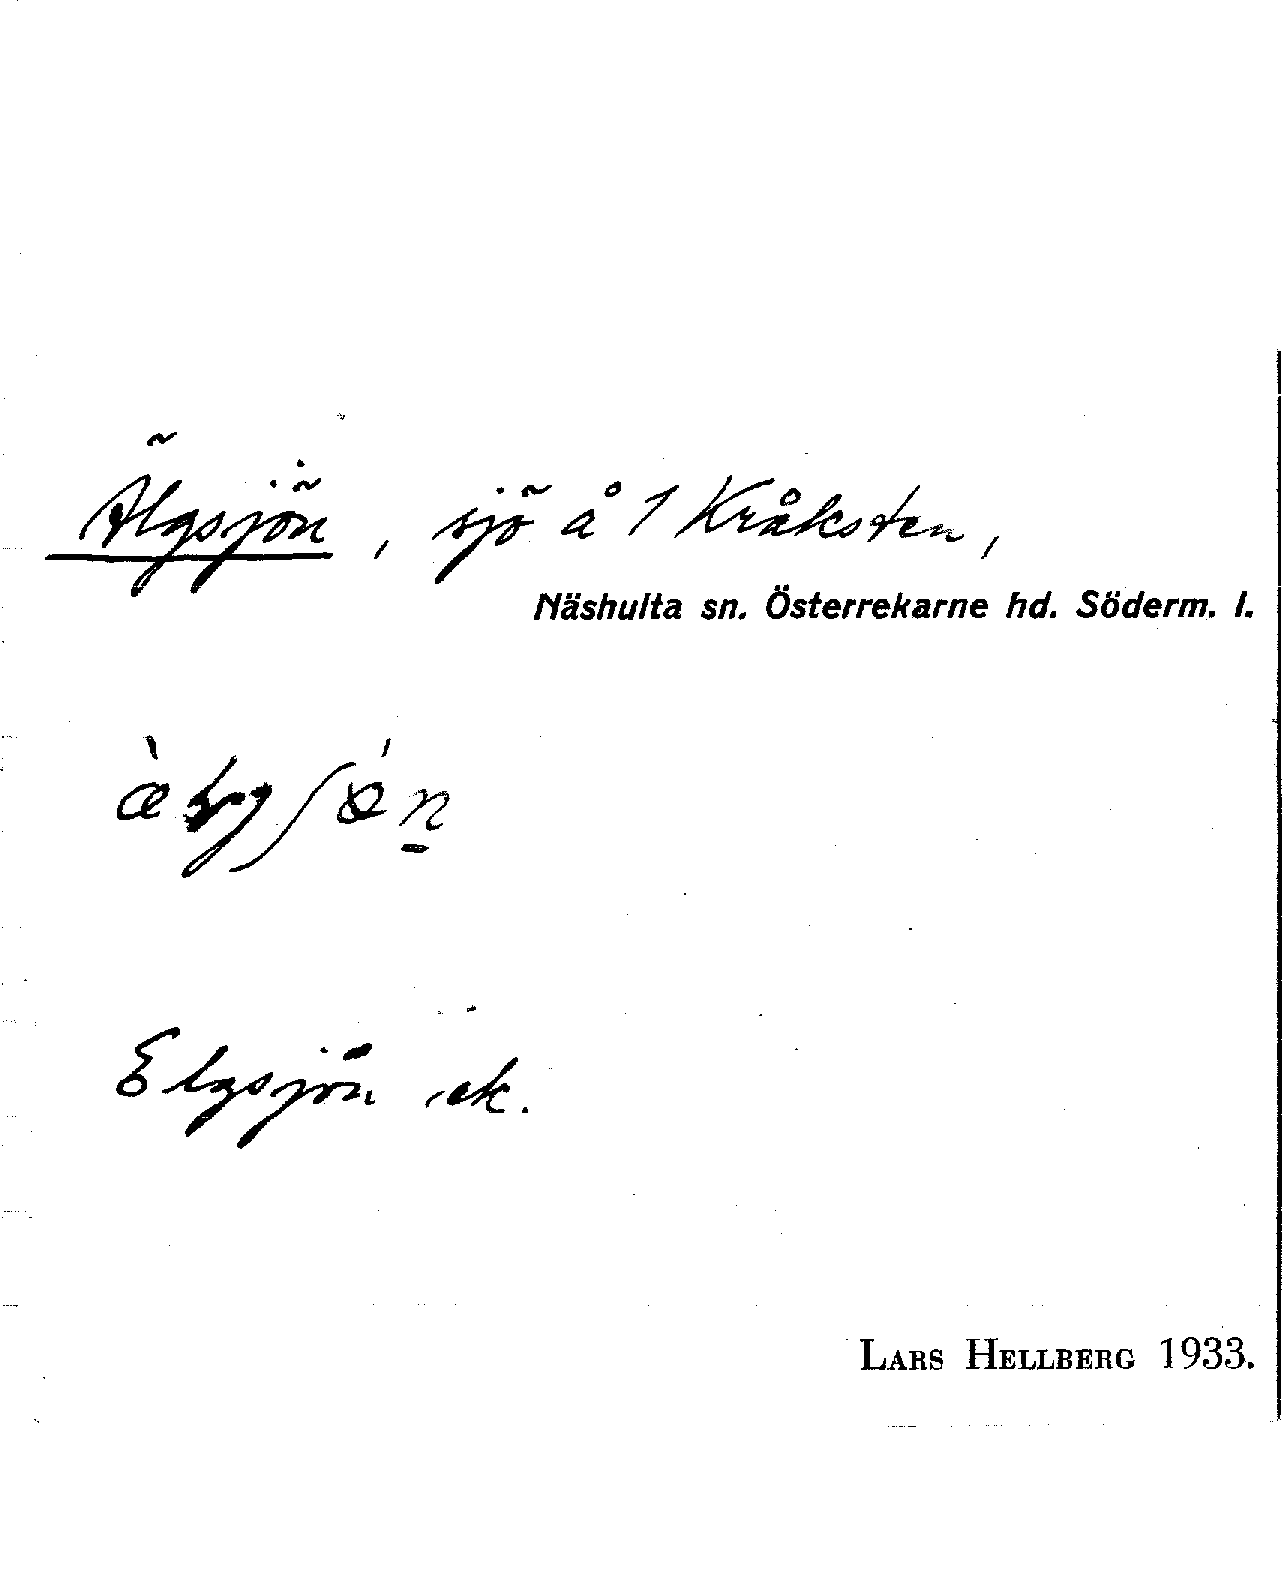 Älgsjön, sjö å 1 Kråksten,
Näshulta sn. Österrekarne hd. Söderm. l.
Elgsjön ek.
LARS HELLBERG 1933.